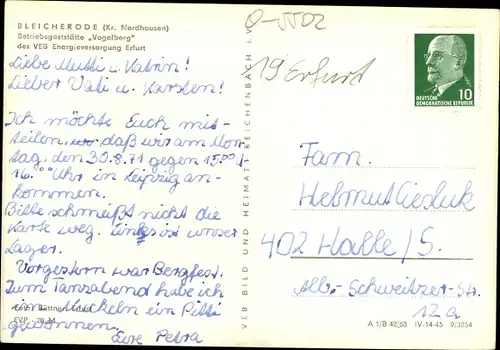 BLEICHERODE (Kr. Nordhausen)
Betriebsgaststätte „Vogelberg"
des VEB Energieversorgung Erfurt
Liebe Mutti u. Katrin!
Lieber Vati u. Karsten!
Ich möchte Euch mit-
teilen, daß wir am Mon-
tag, den 30.8.71 gegen 15.00 -
16.00 Uhr in Leipzig an-
kommen.
Bitte schmeißt nicht die
Karte weg. ist unser
Lager.
Vorgestern war Bergfest.
Zum Tanzabend habe ich
im ein Pitti
gewonnen.
Eure Petra
Foto: Büttner, Erfurt
EVP -,20 M
VEB BILD UND HEIMAT REICHENBACH I. V.
0-5502
19 Erfurt
10
DEUTSCHE
DEMOKRATISCHE REPUBLIK
Fam.
Helmut Giesluk
402 Halle/S.
Alb.-Schweitzer-Str.
12a
A 1/B 42/68 IV-14-45 9/3054